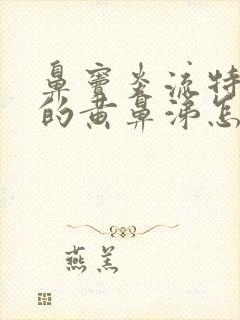 鼻窦炎流特
的黄鼻涕怎
燕羔